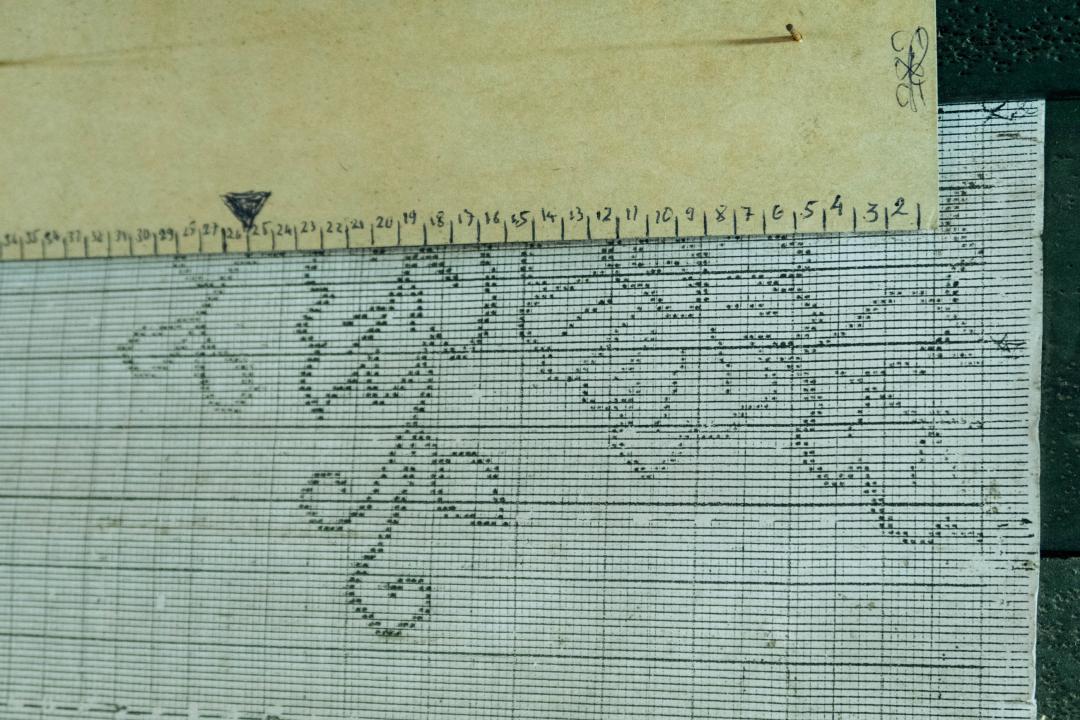 36 35 34 33 32 31 30 29 28 27 26 25 24 23 22 21 20 19 18 17 16 15 14 13 12 11 10 9 8 7 6 5 4 3 2